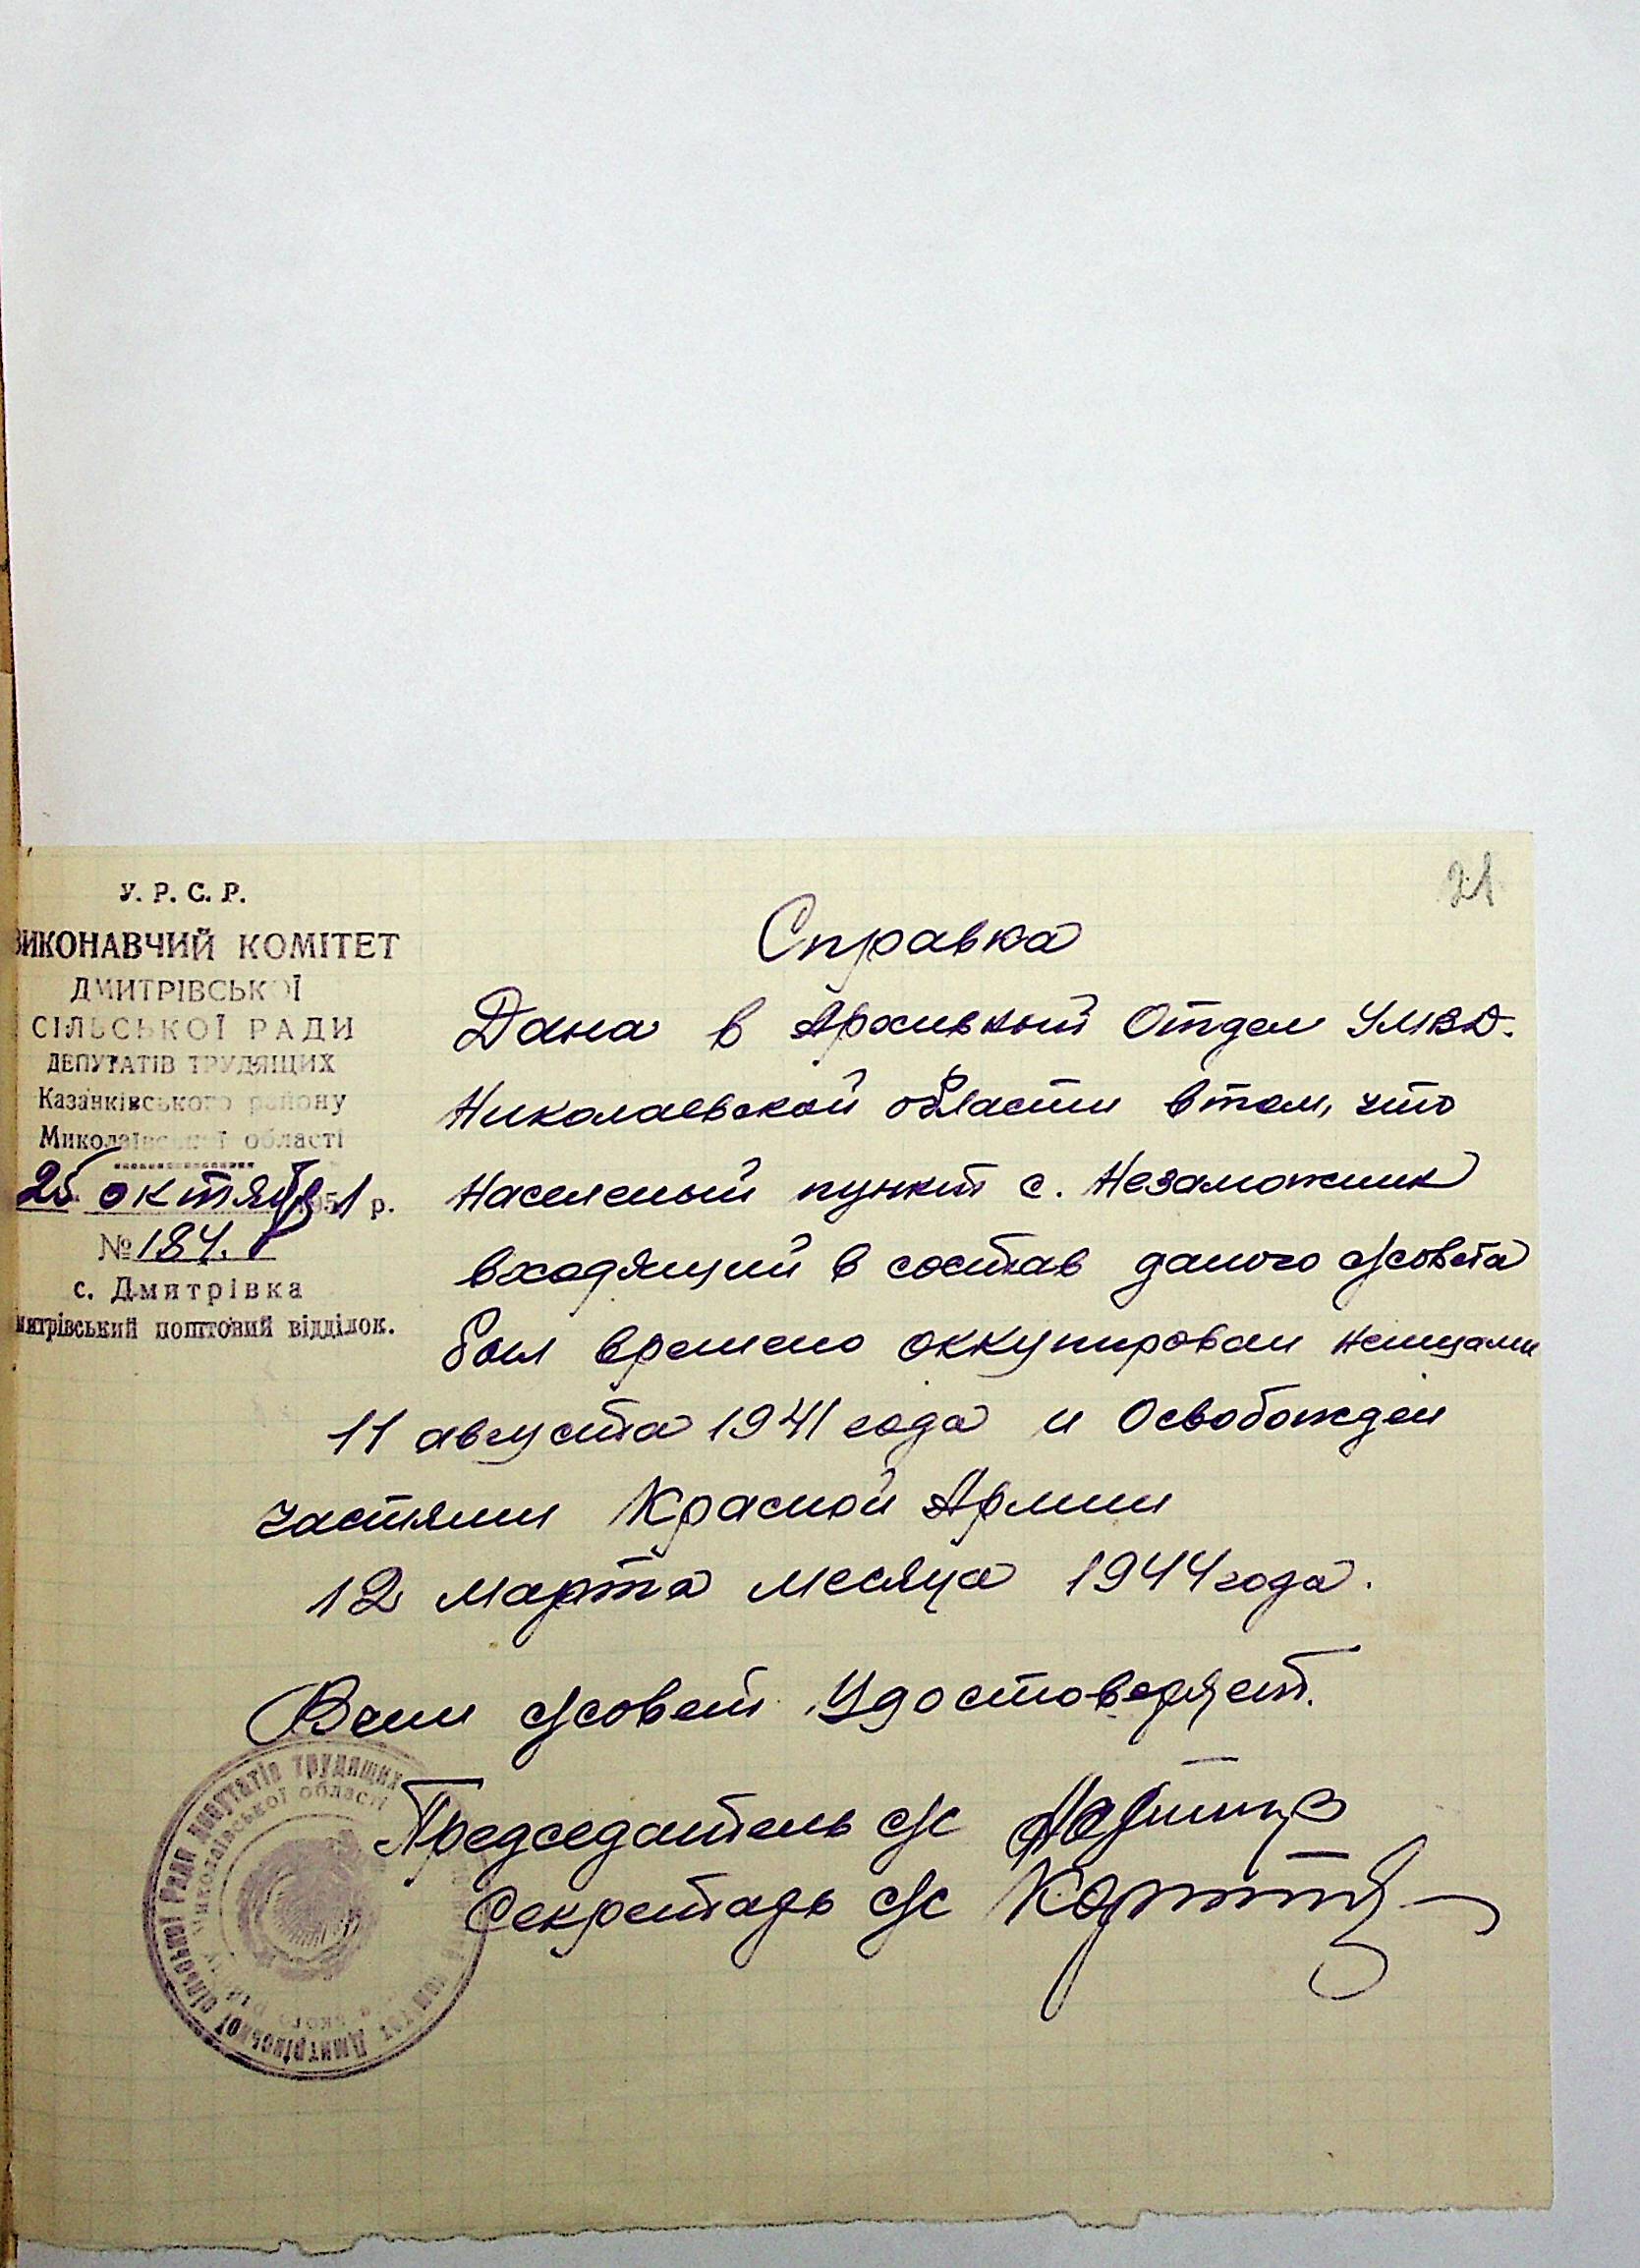 21
У. Р. С. Р.
ВИКОНАВЧИЙ КОМІТЕТ
ДМИТРІВСЬКОЇ
СІЛЬСЬКОЇ РАДИ
ДЕПУТАТІВ ТРУДЯЩИХ
Казанківського району
Миколаївської області
25 октября 1951 р.
№ 184.
с. Дмитрівка
митрівський поштовий відділок.
Справка
Дана в Архивный Отдел УМВД.
Николаевской области в том, что
Населеный пункт с. Незаможник
входящий в состав даного с/совета
был времено оккупирован немцами
11 августа 1941 года и Освобожден
частями Красной Армии
12 марта месяца 1944 года.
В чем с/совет Удостоверяет.
Председатель с/с
Секретарь с/с
Дмитрівської сільської Ради депутатів трудящих
Миколаївської області